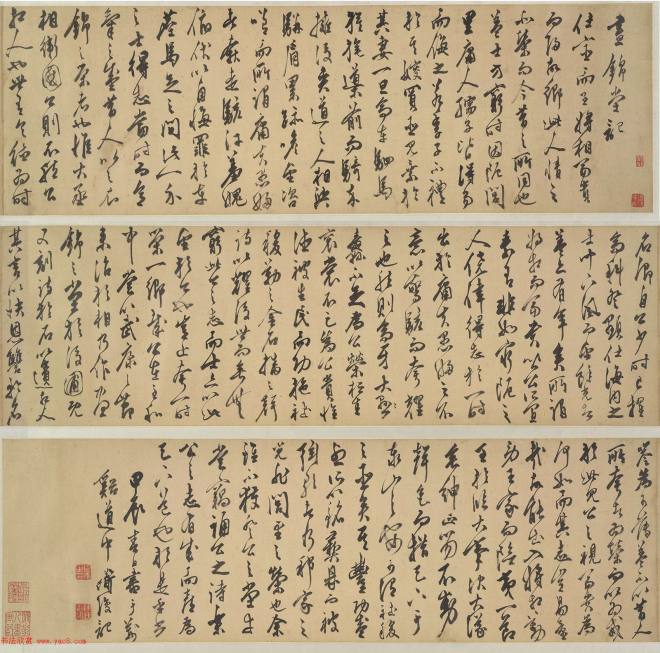 晝錦堂記
仕宦而至將相富貴
而歸故鄉此人情之
所榮而今昔之所同也
蓋士方窮時困阨閭
里庸人孺子皆得易
而侮之若季子不禮
於其嫂買臣見棄於
其妻一旦高車駟馬
旗旄導前而騎卒
擁後夾道之人相與
駢肩累跡瞻望咨
嗟而所謂庸夫愚婦
者奔走駭汗羞愧
俯伏以自悔罪於車
塵馬足之間此一介
之士得志當時而意
氣之盛昔人比之衣
錦之榮者也惟大丞
相衛國公則不然公
相人也世有令德為時
名卿自公少時已擢
高科登顯仕海內之
士聞下風而望餘光者
蓋亦有年矣所謂
將相而富貴皆公所宜
素有非如窮阨之
人僥倖得志於一時
出於庸夫愚婦之不
意以驚駭而夸耀
之也然則高牙大
纛不足為公榮桓圭
袞裳不足為公貴惟
德被生民而功施社
稷勒之金石播之聲
詩以耀後世而垂無
窮此公之志而士亦以此
望於公也豈止夸一時
榮一鄉哉公在至和
中嘗以武康之節
來治於相乃作晝
錦之堂於後圃既
又刻詩於石以遺相人
其言以快恩讎矜名
譽為可薄蓋不以昔人
所夸者為榮而以為戒
於此見公之視富貴為
何如而其志豈易量
哉故能出入將相勤
勞王家而夷險一節
至於臨大事決大議
垂紳正笏不動
聲色而措天下於
泰山之安可謂社稷
之臣矣其豐功盛
烈所以銘彝鼎而被
絃歌者乃邦家之
光非閭里之榮也余
雖不獲登公之堂幸
嘗竊誦公之詩樂
公之志有成而喜為
天下道也於是乎書
甲辰吉日書于
谿道中 記
书法欣赏 www.yac8.com